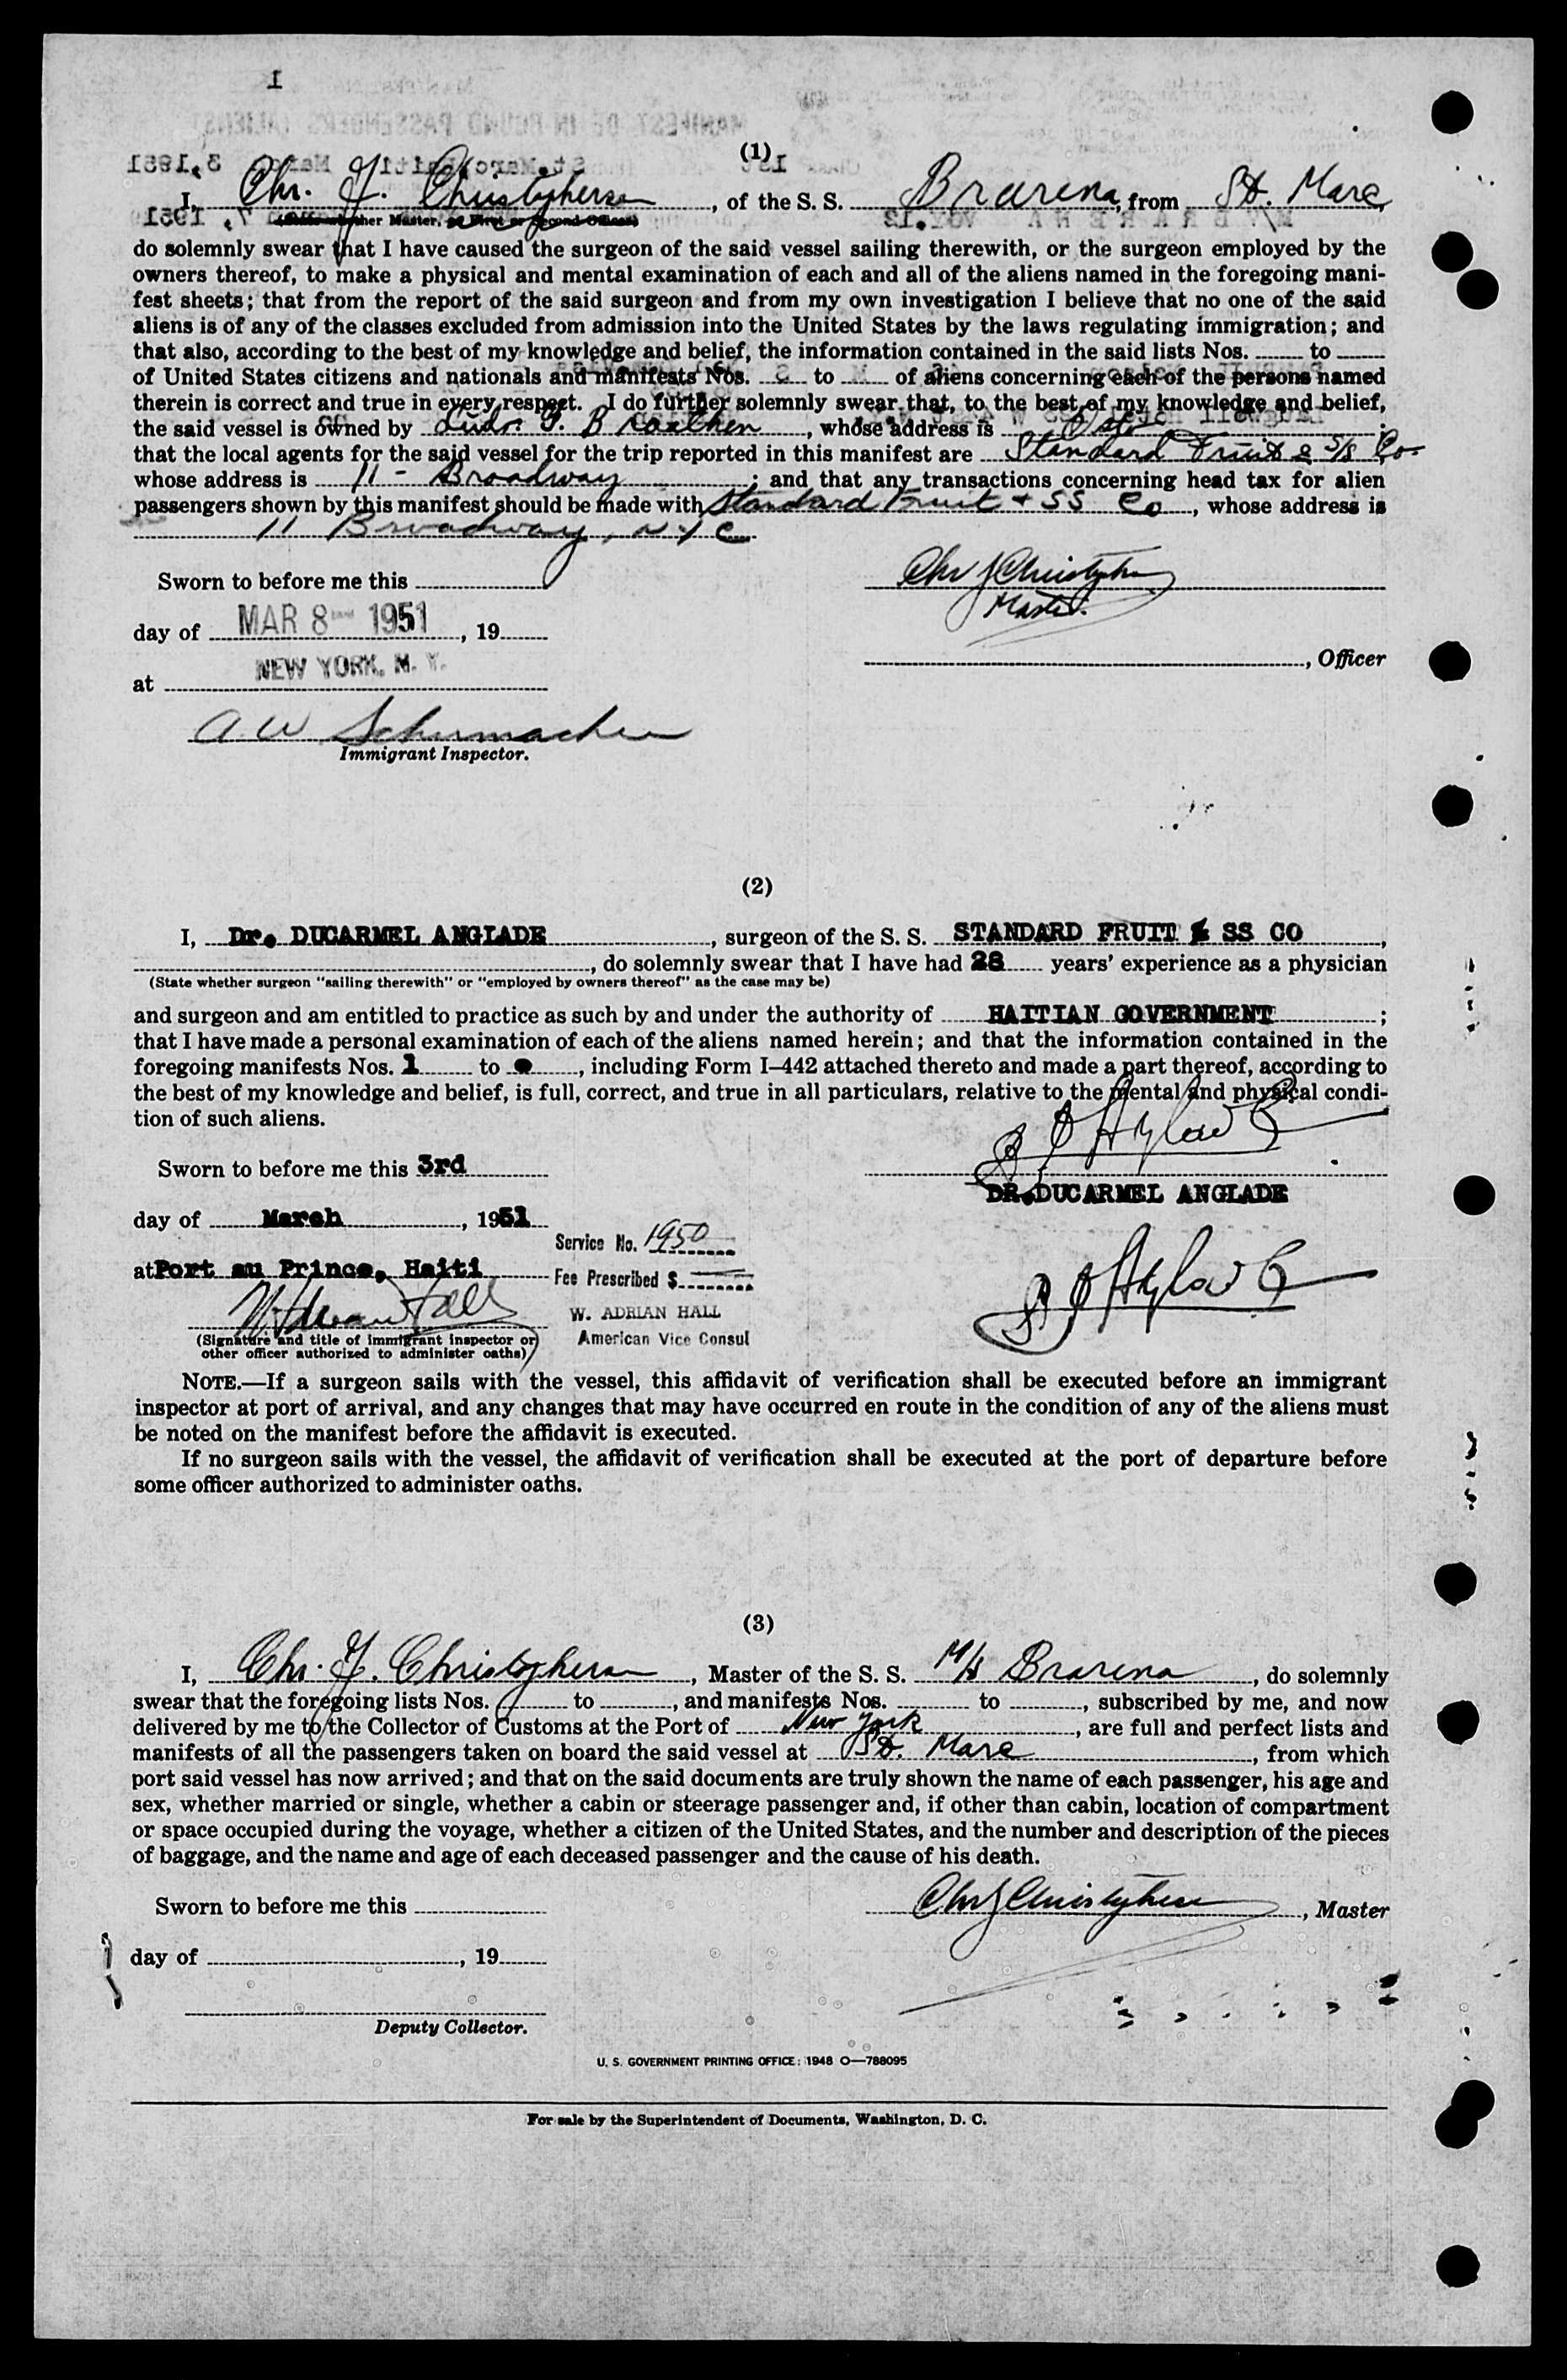 (1)
I, Chr. J. Christophersen, of the S. S. Brarena, from St. Marc,
do solemnly swear that I have caused the surgeon of the said vessel sailing therewith, or the surgeon employed by the
owners thereof, to make a physical and mental examination of each and all of the aliens named in the foregoing mani-
fest sheets; that from the report of the said surgeon and from my own investigation I believe that no one of the said
aliens is of any of the classes excluded from admission into the United States by the laws regulating immigration; and
that also, according to the best of my knowledge and belief, the information contained in the said lists Nos. ........ to ........
of United States citizens and nationals and manifests Nos. ........ to ........ of aliens concerning each of the persons named
therein is correct and true in every respect. I do further solemnly swear that, to the best of my knowledge and belief,
the said vessel is owned by Ludv. G. Braathen, whose address is Oslo;
that the local agents for the said vessel for the trip reported in this manifest are Standard Fruit & S/S Co.
whose address is 11 - Broadway; and that any transactions concerning head tax for alien
passengers shown by this manifest should be made with Standard Fruit + SS Co, whose address is
11 Broadway, N Y C
Sworn to before me this
Chr J Christophersen
Master.
day of MAR 8 - 1951, 19
, Officer
at NEW YORK, N. Y.
A. W. Schumacher
Immigrant Inspector.
(2)
I, Dr. DUCARMEL ANGLADE, surgeon of the S. S. STANDARD FRUIT & SS CO,
, do solemnly swear that I have had 28 years' experience as a physician
(State whether surgeon "sailing therewith" or "employed by owners thereof" as the case may be)
and surgeon and am entitled to practice as such by and under the authority of HAITIAN GOVERNMENT;
that I have made a personal examination of each of the aliens named herein; and that the information contained in the
foregoing manifests Nos. 1 to , including Form I-442 attached thereto and made a part thereof, according to
the best of my knowledge and belief, is full, correct, and true in all particulars, relative to the mental and physical condi-
tion of such aliens.
Sworn to before me this 3rd
DR. DUCARMEL ANGLADE
day of March, 1951
Service No. 1950
at Port au Prince, Haiti
Fee Prescribed $
W. Adrian Hall
W. ADRIAN HALL
(Signature and title of immigrant inspector or
American Vice Consul
other officer authorized to administer oaths)
NOTE.—If a surgeon sails with the vessel, this affidavit of verification shall be executed before an immigrant
inspector at port of arrival, and any changes that may have occurred en route in the condition of any of the aliens must
be noted on the manifest before the affidavit is executed.
If no surgeon sails with the vessel, the affidavit of verification shall be executed at the port of departure before
some officer authorized to administer oaths.
(3)
I, Chr. J. Christophersen, Master of the S. S. M/S Brarena, do solemnly
swear that the foregoing lists Nos. ........ to ........, and manifests Nos. ........ to ........, subscribed by me, and now
delivered by me to the Collector of Customs at the Port of New York, are full and perfect lists and
manifests of all the passengers taken on board the said vessel at St. Marc, from which
port said vessel has now arrived; and that on the said documents are truly shown the name of each passenger, his age and
sex, whether married or single, whether a cabin or steerage passenger and, if other than cabin, location of compartment
or space occupied during the voyage, whether a citizen of the United States, and the number and description of the pieces
of baggage, and the name and age of each deceased passenger and the cause of his death.
Sworn to before me this
Chr J Christophersen, Master
day of , 19
Deputy Collector.
U. S. GOVERNMENT PRINTING OFFICE: 1948 O—788095
For sale by the Superintendent of Documents, Washington, D. C.